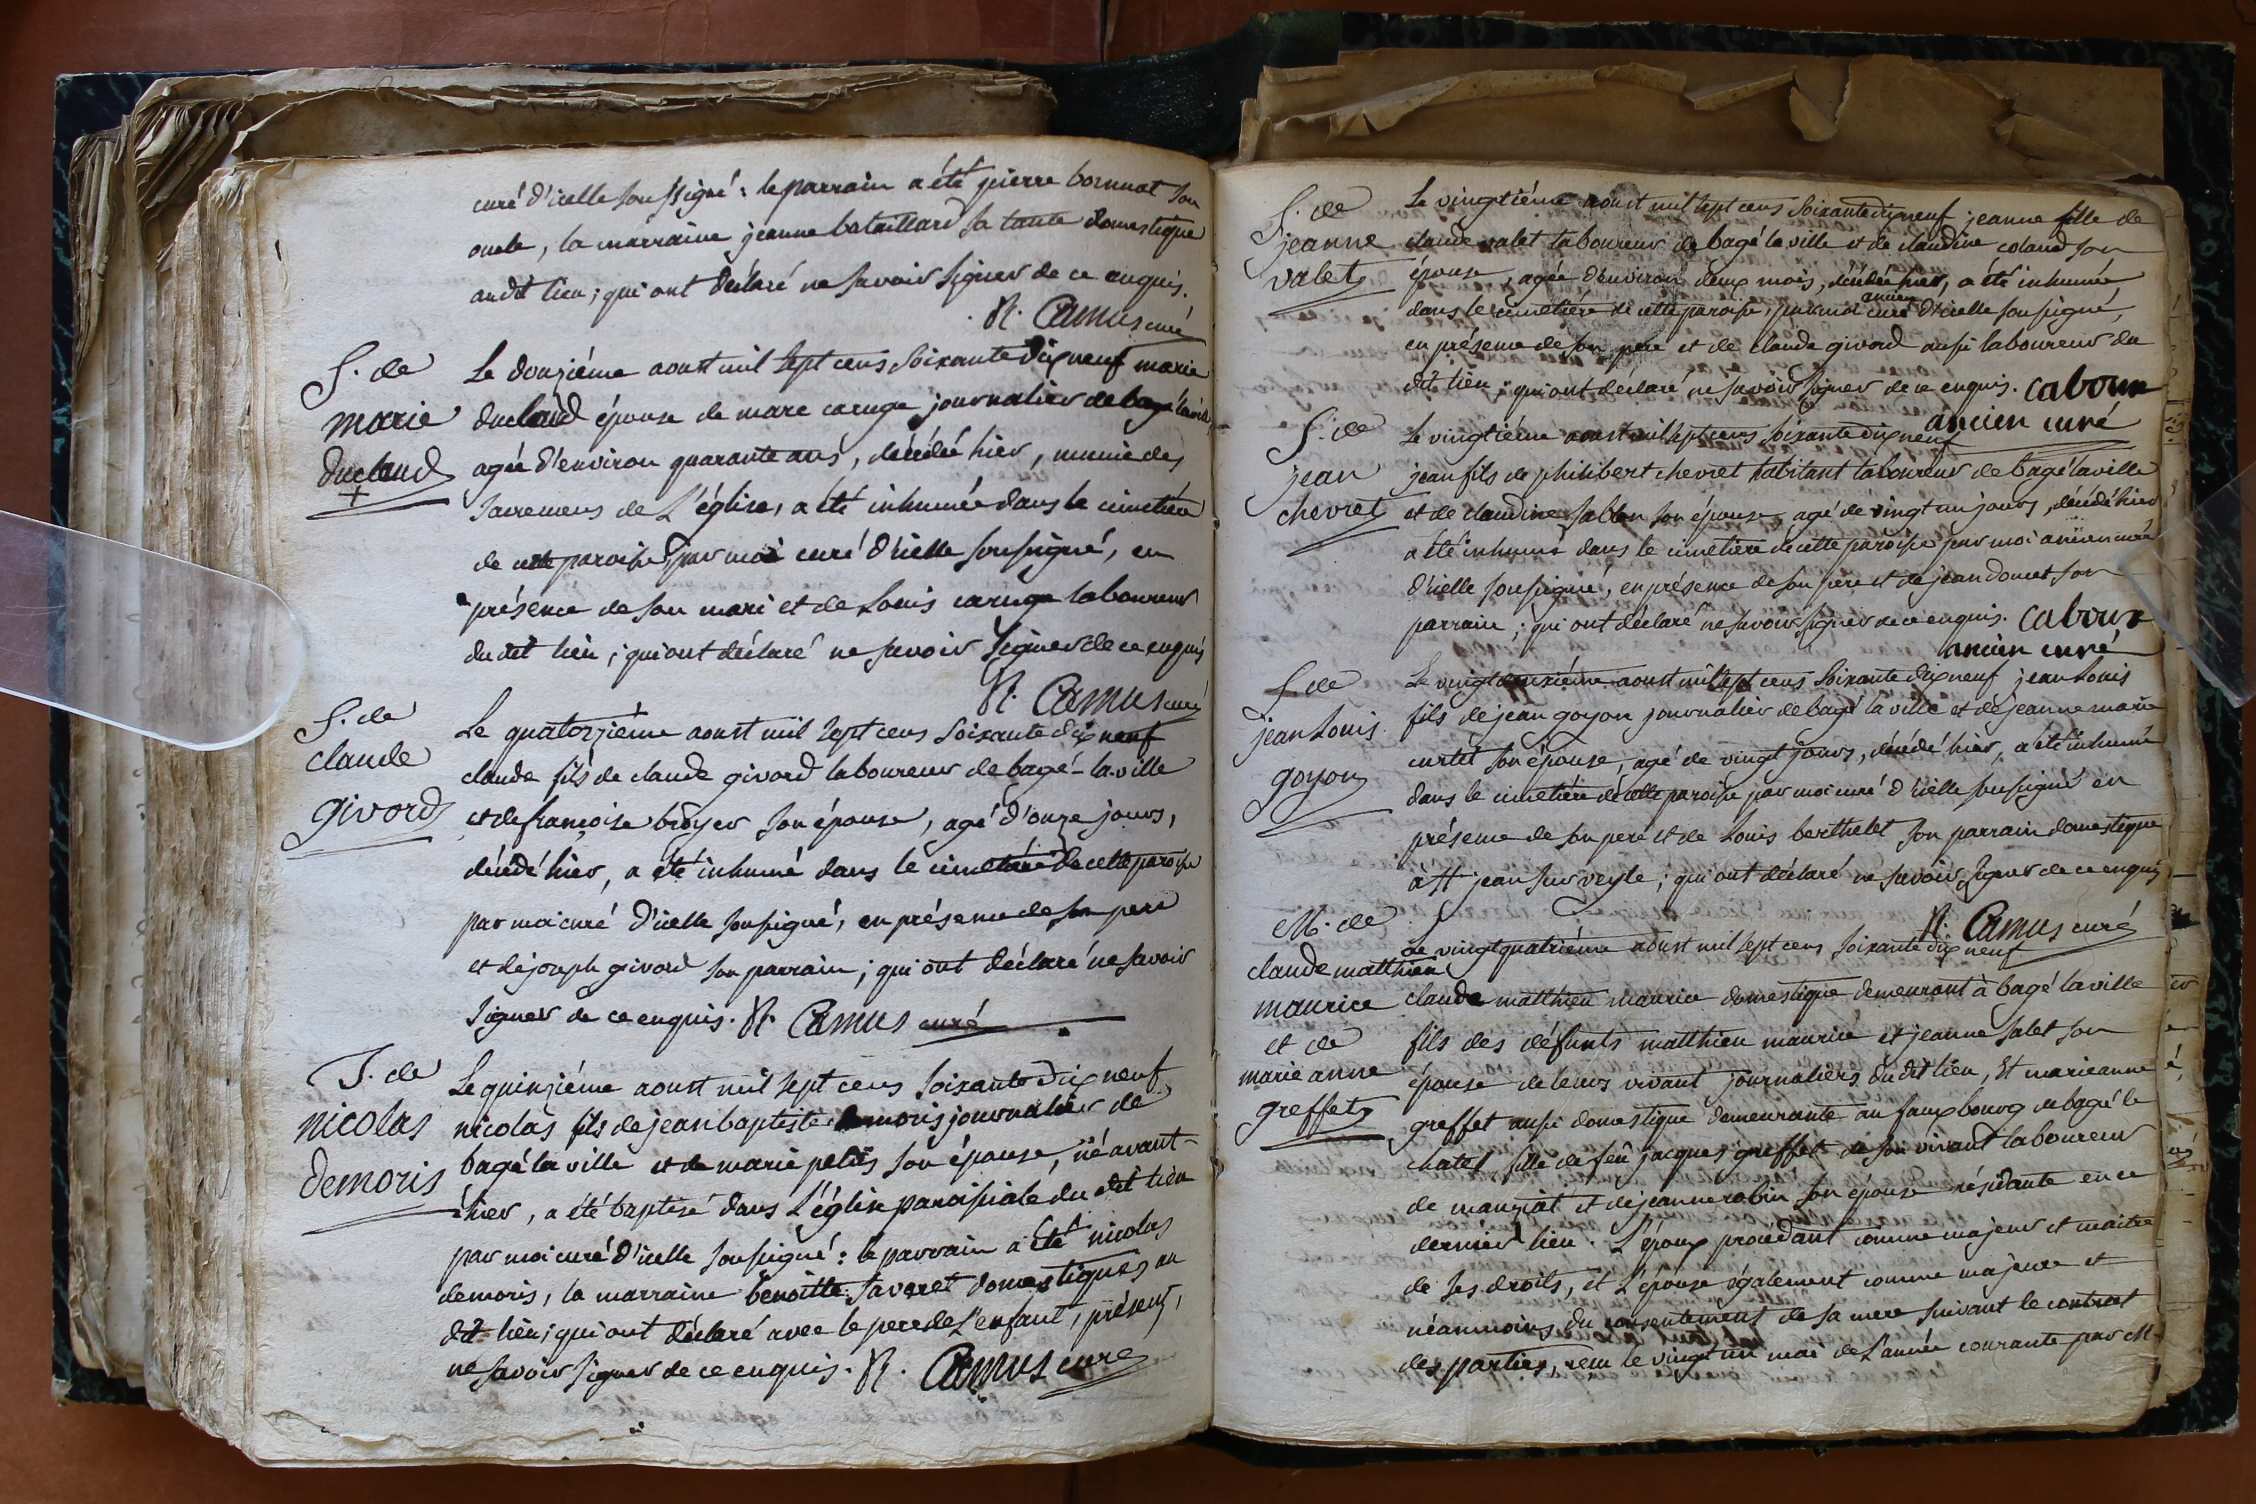 curé d'icelle soussigné : le parrain a été pierre bornuat son
oncle, la marraine jeanne bataillard sa tante domestique
audit lieu ; qui ont déclaré ne savoir signer de ce enquis.
N. Camus curé
S. de
marie
duclaud
Le douziéme aoust mil sept cens soixante dix neuf marie
duclaud épouse de marc caruge journalier de bagé laville
agée d'environ quarante ans, décédée hier, munie des
sacremens de L'église, a été inhumée dans le cimetière
de cette paroisse par moi curé d'icelle soussigné, en
présence de son mari et de Louis caruge laboureur
du dit lieu ; qui ont déclaré ne savoir signer de ce enquis
N. Camus curé
S. de
claude
givord
Le quatorziéme aoust mil sept cens soixante dix neuf
claude fils de claude givord laboureur de bagé-la-ville
et de francoise broyer son épouse, agé d'onze jours,
décédé hier, a été inhumé dans le cimetière de cette paroisse
par moi curé d'icelle soussigné, en présence de son pere
et de joseph givord son parrain ; qui ont déclaré ne savoir
signer de ce enquis. N. Camus curé
J. de
nicolas
demoris
Le quinziéme aoust mil sept cens soixante dix neuf
nicolas fils de jean baptiste demoris journalier de
bagé la ville et de marie petit son épouse, né avant-
hier, a été baptisé dans L'église paroissiale du dit lieu
par moi curé d'icelle soussigné : le parrain a été nicolas
demoris, la marraine benoitte savoret domestiques au
dit lieu ; qui ont déclaré avec le pere de L'enfant, présent,
ne savoir signer de ce enquis. N. Camus curé
S. de
jeanne
valet
Le vingtiéme aoust mil sept cens soixante dix neuf jeanne fille de
claude valet laboureur de bagé la ville et de claudine coland son
épouse, agée d'environ deux mois, décédée hier, a été inhumée
dans le cimetière de cette paroisse, par moi ancien curé d'icelle soussigné,
en présence de son pere et de claude givord aussi laboureur du
dit lieu ; qui ont déclaré ne savoir signer de ce enquis. caboux
ancien curé
S. de
jean
chevret
Le vingtiéme aoust mil sept cens soixante dix neuf
jean fils de philibert chevret habitant laboureur de bagé laville
et de claudine sallon son épouse, agé de vingt un jours, décédé hier
a été inhumé dans le cimetière de cette paroisse par moi ancien curé
d'icelle soussigné, en présence de son pere et de jean doucet son
parrain ; qui ont déclaré ne savoir signer de ce enquis. caboux
ancien curé
S. de
jean Louis
goyon
Le vingt deuxiéme aoust mil sept cens soixante dix neuf jean Louis
fils de jean goyon journalier de bagé la ville et de jeanne marie
curtet son épouse, agé de vingt jours, décédé hier, a été inhumé
dans le cimetière de cette paroisse par moi curé d'icelle soussigné en
présence de son pere et de Louis berthelet son parrain domestique
à St jean sur veyle ; qui ont déclaré ne savoir signer de ce enquis
N. Camus curé
M. de
claude matthieu
maurice
et de
marie anne
greffet
Le vingt quatriéme aoust mil sept cens soixante dix neuf
claude matthieu maurice domestique demeurant à bagé laville
fils des défunts matthieu maurice et jeanne salet son
épouse de leurs vivant journaliers du dit lieu, Et marie anne
greffet aussi domestique demeurante au fauxbourg de bagé le
chatel fille de feû jacques greffet de son vivant laboureur
de manziat et de jeanne robin son épouse résidante en ce
dernier lieu. L'époux procédant comme majeur et maitre
de ses droits, et L'épouse également comme majeure et
néanmoins du consentement de sa mere suivant le contrat
des parties, reçu le vingt un mai de L'année courante par M.